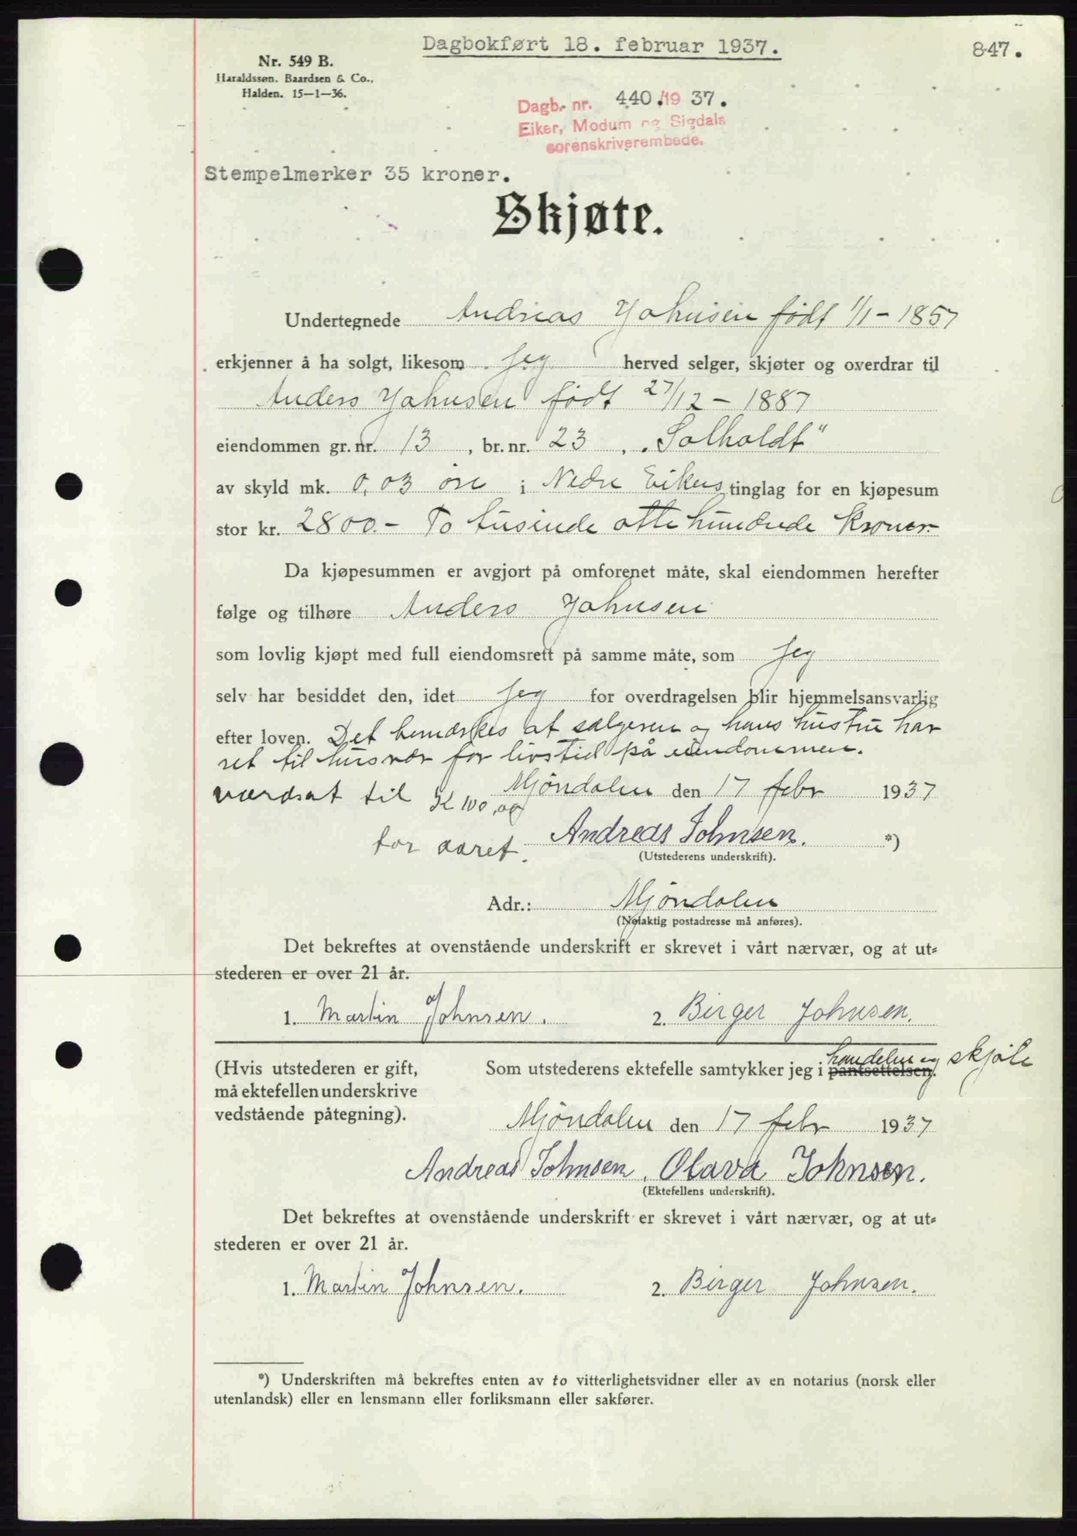 Dagbokført 18. februar 1937.
847.
Nr. 549 B.
Haraldssøn, Baardsen & Co.,
Halden. 15—1—36.
Dagb. nr. 440./19 37.
Eiker, Modum og Sigdals
sorenskriverembede.
Stempelmerker 35 kroner.
Skjøte.
Undertegnede Andreas Johnsen født 1/1 - 1857
erkjenner å ha solgt, likesom jeg herved selger, skjøter og overdrar til
Anders Johnsen født 27/12 - 1887
eiendommen gr. nr. 13, br. nr. 23, „Solholdt"
av skyld mk. 0,03 øre i Nedre Eikers tinglag for en kjøpesum
stor kr. 2800.- To tusinde otte hundrede kroner
Da kjøpesummen er avgjort på omforenet måte, skal eiendommen herefter
følge og tilhøre Anders Johnsen
som lovlig kjøpt med full eiendomsrett på samme måte, som jeg
selv har besiddet den, idet jeg for overdragelsen blir hjemmelsansvarlig
efter loven. Det bemærkes at sælgeren og hans hustru har
ret til husvær for livstid på eiendommen.
værdsat til K 100,00 Mjöndalen den 17 febr 1937
for aaret. Andreas Johnsen. *)
(Utstederens underskrift).
Adr.: Mjöndalen
(Nøiaktig postadresse må anføres).
Det bekreftes at ovenstående underskrift er skrevet i vårt nærvær, og at ut=
stederen er over 21 år.
1. Martin Johnsen. 2. Birger Johnsen.
(Hvis utstederen er gift,
må ektefellen underskrive
vedstående påtegning).
Som utstederens ektefelle samtykker jeg i pantsettelsen. handelen og skjöte
Mjöndalen den 17 febr 1937
Andreas Johnsen. Olava Johnsen.
(Ektefellens underskrift).
Det bekreftes at ovenstående underskrift er skrevet i vårt nærvær, og at ut=
stederen er over 21 år.
1. Martin Johnsen. 2. Birger Johnsen.
*) Underskriften må bekreftes enten av to vitterlighetsvidner eller av en notarius (norsk eller
utenlandsk) eller en lensmann eller forliksmann eller sakfører.